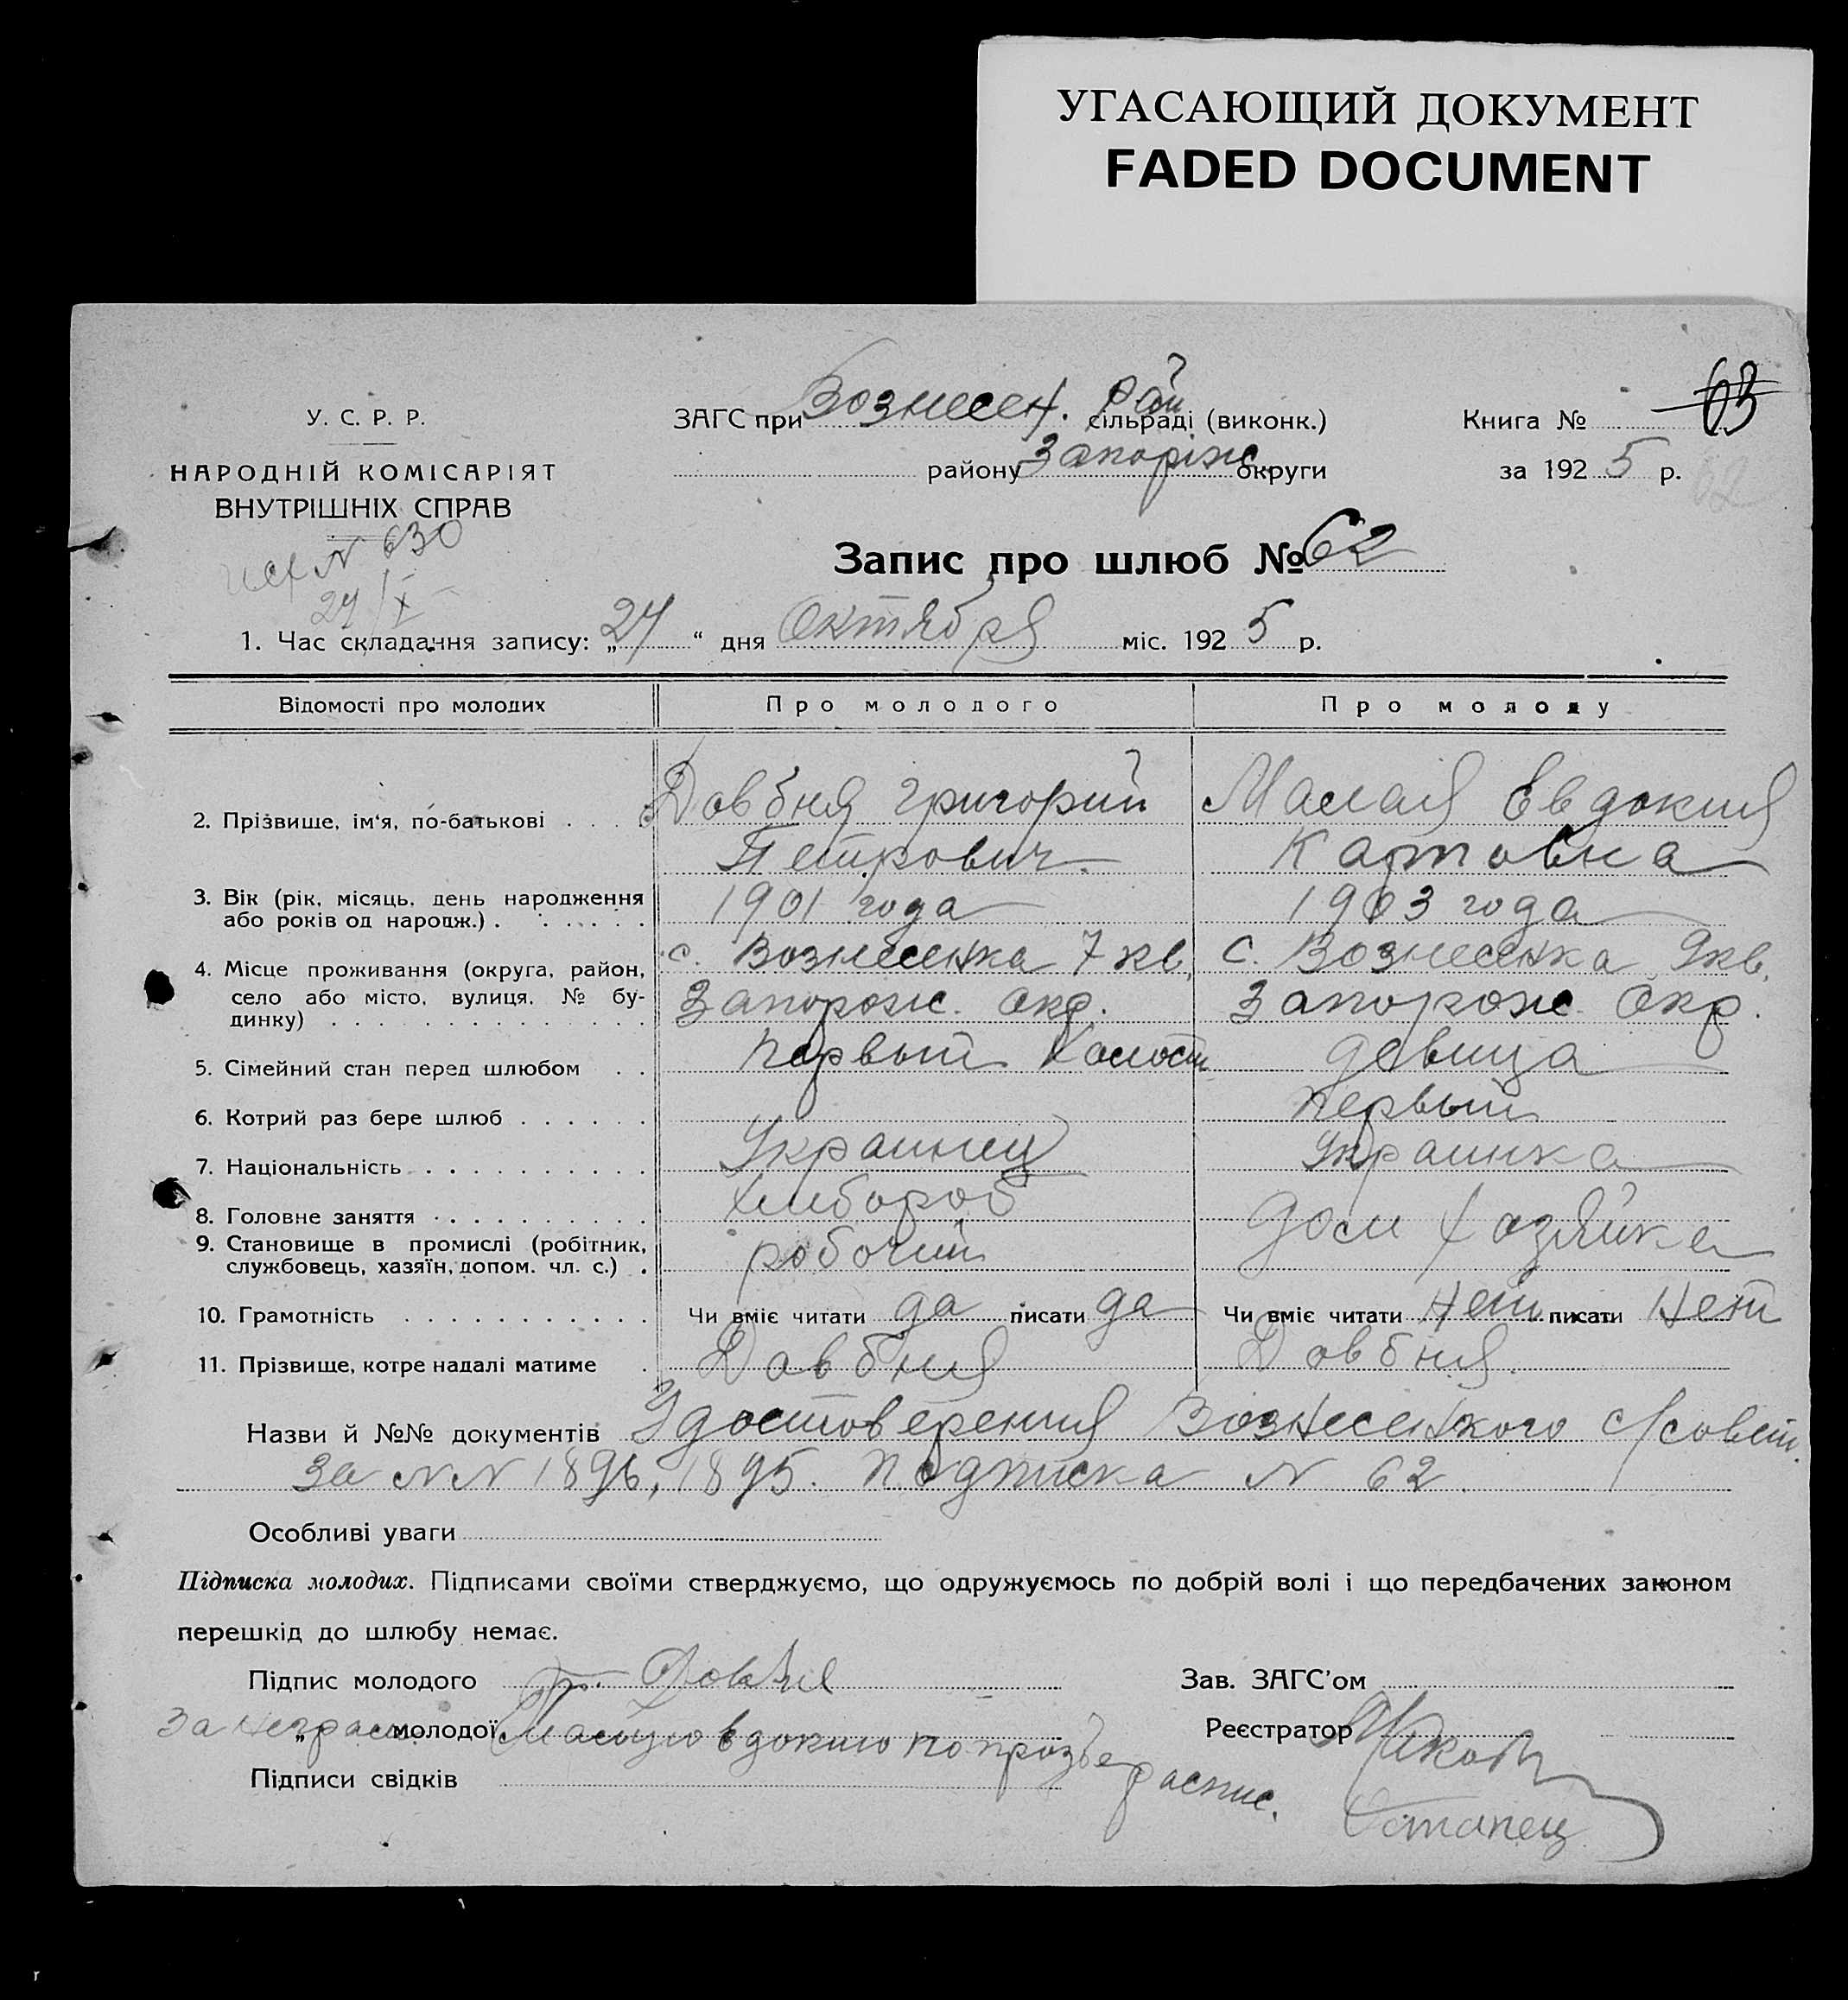 УГАСАЮЩИЙ ДОКУМЕНТ
FADED DOCUMENT
У. С. Р. Р.
НАРОДНІЙ КОМІСАРІЯТ
ВНУТРІШНІХ СПРАВ
исх N 630
24/X
ЗАГС при Вознесен. Рай сільраді (виконк.)
району Запоріж. округи
Книга № 63
за 1925 р.
62
Запис про шлюб № 62
1. Час складання запису: „24“ дня Октября міс. 1925 р.
Відомості про молодих Про молодого Про молоду
2. Прізвище, ім'я, по-батькові . . . . Довбня Григорий Малая Евдокия
Петрович Карповна
3. Вік (рік, місяць, день народження
або років од народж.) . . . . . . 1901 года 1903 года
4. Місце проживання (округа, район, с. Вознесенка 7 кв. с. Вознесенка 9 кв.
село або місто, вулиця, № бу-
динку) . . . . . . . . . . . . . . Запорож. Окр. Запорож. Окр.
5. Сімейний стан перед шлюбом . . Первый Холост девица
6. Котрий раз бере шлюб . . . . . . Первый
7. Національність . . . . . . . . . . Украинец Украинка
8. Головне заняття . . . . . . . . . . Хлибороб Дом Хозяйка
9. Становище в промислі (робітник,
службовець, хазяїн, допом. чл. с.) . робочий
10. Грамотність . . . . . . . . . . . Чи вміє читати да писати да Чи вміє читати Нет писати Нет
11. Прізвище, котре надалі матиме . Довбня Довбня
Назви й №№ документів Удостоверения Вознесенского с/совет.
за NN 1896, 1895. Подписка N 62.
Особливі уваги
Підписка молодих. Підписами своїми стверджуємо, що одружуємось по добрій волі і що передбачених законом
перешкід до шлюбу немає.
Підпис молодого Г. Довбня Зав. ЗАГС'ом
За неграм. „ молодої Малую Евдокию по прозбе распис. Реєстратор
Підписи свідків
Остапец